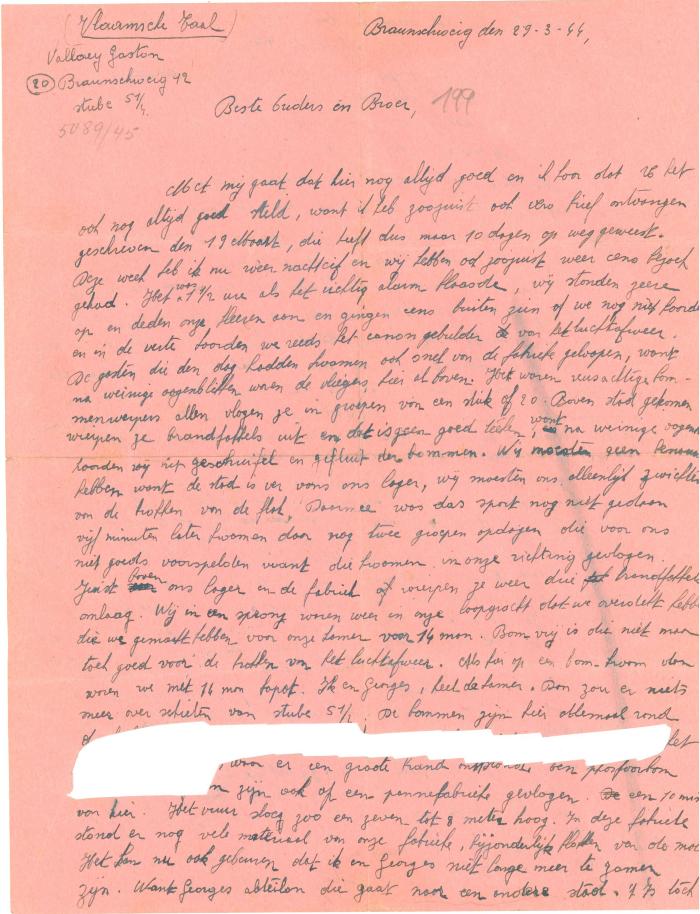 (Vlaamsche Taal)
Braunschweig den 29-3-44,
Vallaey Gaston
20 Braunschweig 42
stube 51/2
5089/45
Beste Ouders en Broer, 199
Met mij gaat dat hier nog altijd goed en ik hoor dat U het
ook nog altijd goed steld, want ik heb zoojuist ook uw brief ontvangen
geschreven den 19 Maart, die heeft dus maar 10 dagen op weg geweest.
Deze week heb ik nu weer nachtcif en wij hebben ook zoojuist weer eens bezoek
gehad. Het was 1 1/2 ure als het luchtig alarm blaasde, wij stonden zeere
op en deden onze kleeren aan en gingen eens buiten zien of we nog niet hoorde
en in de verte hoorden we reeds het canon gebulder van het luchtafweer.
De gasten die den dag hadden kwamen ook snel van de fabriek geloopen, want
na weinige oogenblikken waren de vliegers hier al boven. Het waren reusachtige bom-
menwerpers allen vlogen ze in groepen van een stuk of 20. Boven stad gekomen
wierpen ze brandfakkels uit en dat is geen goed teeken, want na weinige oogen
hoorden wij het geschuifel en gefluit der bommen. Wij moesten geen
hebben want de stad is ver vans ons lager, wij moesten ons alleenlijk zwichten
van de brokken van de flak. Daarmee was das sport nog niet gedaan
vijf minuten later kwamen daar nog twee groepen opdagen die voor ons
niet goeds voorspelden want die kwamen in onze richting gevlogen.
Juist boven ons lager en de fabriek wierpen ze weer drie brandfakkels
omlaag. Wij in een sprong waren weer in onze loopgracht dat we overdekt hebb
die we gemaakt hebben voor onze kamer voor 14 man. Bom vrij is die niet maar
toch goed voor de brokken van het luchtafweer. Als hier op een bom kwam dan
waren we met 14 man kapot. Ik en Georges, heel de kamer. Dan zou er niets
meer over schieten van stube 51/2. De bommen zijn hier allemaal rond
het
, waar er een groote brand een phosfoorbom
zijn ook op een pannefabriek gevlogen. een 10 min
van hier. Het vuur sloeg zoo een zeven tot 8 meter hoog. In deze fabrieke
stond er nog vele materiaal van onze fabrieke, bijzonderlijk blokken van de mo
Het kan nu ook gebeuren dat ik en Georges niet lange meer te zamen
zijn. Want Georges abteilon die gaat naar een andere stad. 't Is toch